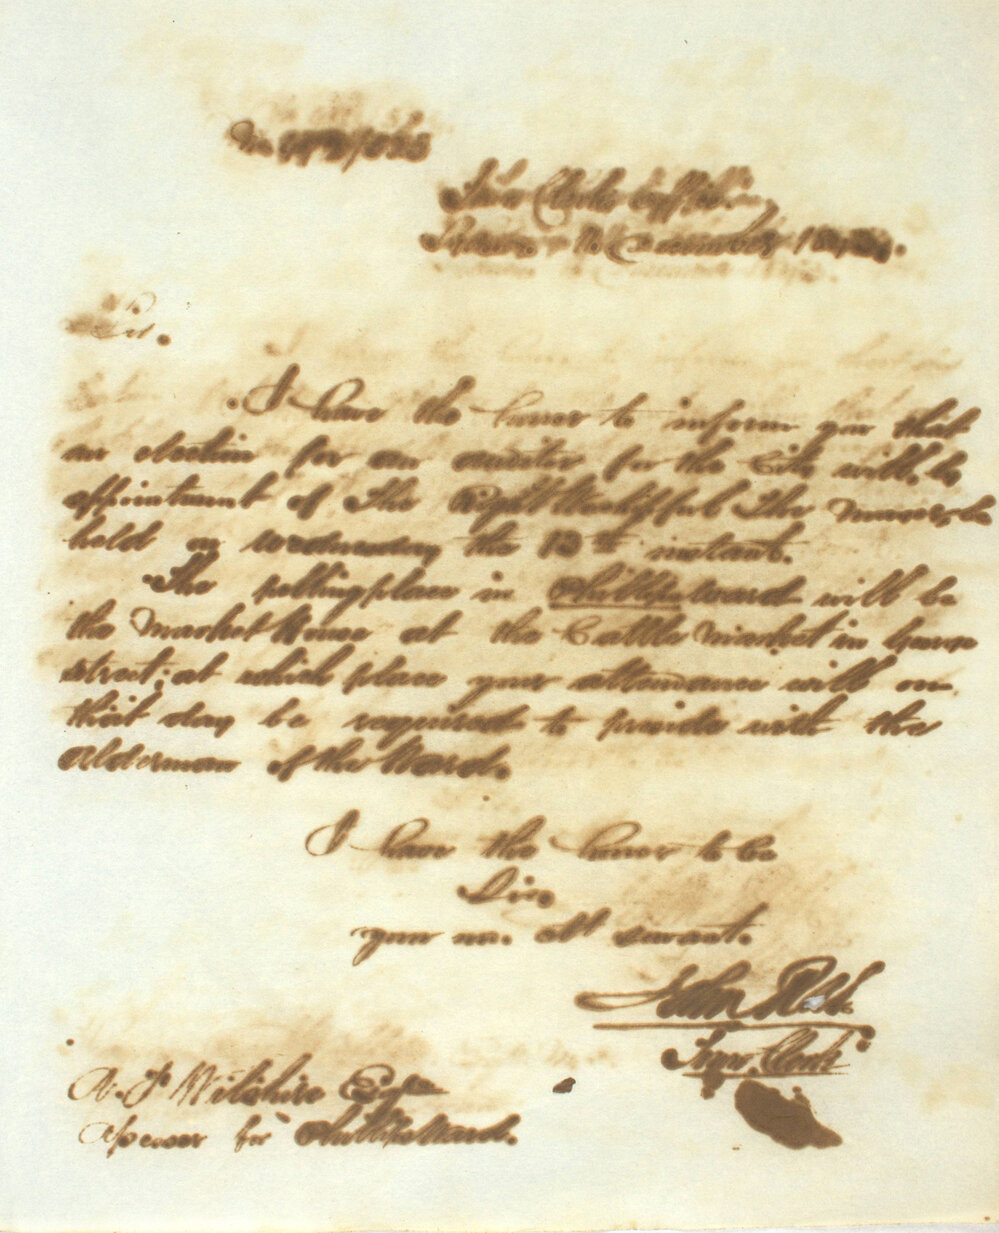 Town Clerk's Office,
December
Sir.
I have the honor to inform you that
an election for an auditor for the City will, by
appointment of The Right Worshipful The Mayor, be
held on Wednesday the 13th instant.
The polling place in Phillip Ward will be
the Market House at the Cattle Market in George
street; at which place your attendance will on
that day be required to preside with the
Alderman of the Ward.
I have the honor to be
Sir,
your mo. obt servant.
John
Town Clerk
Wilshire Esqr
Assessor for Phillip Ward.